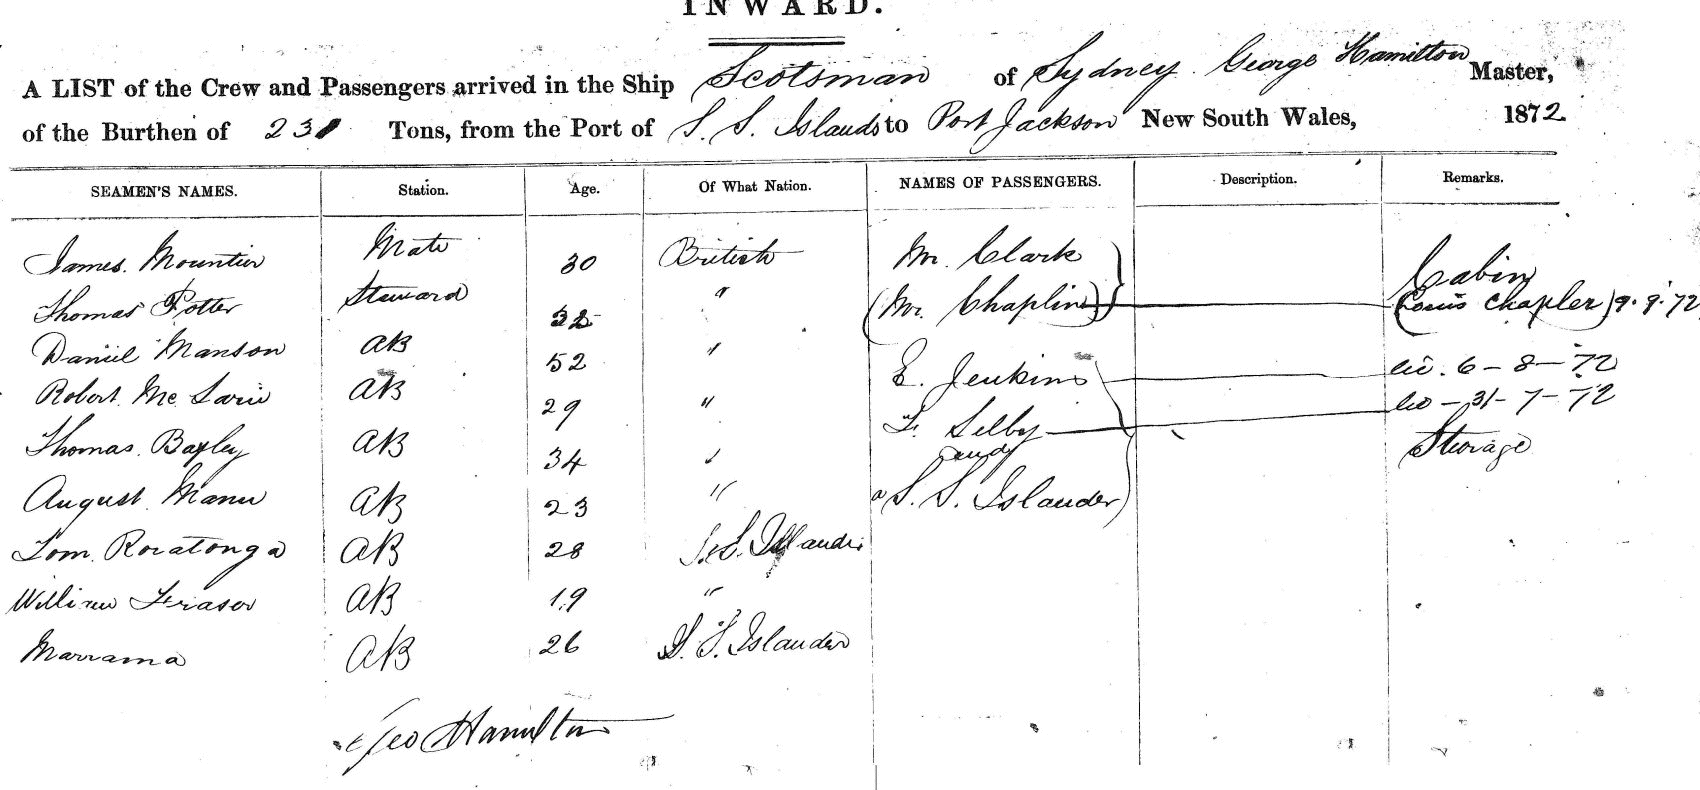 INWARD.
A LIST of the Crew and Passengers arrived in the Ship Scotsman of Sydney George Hamilton Master,
of the Burthen of 231 Tons, from the Port of S. S. Islands to Port Jackson New South Wales, 1872
SEAMEN'S NAMES. Station. Age. Of What Nation. NAMES OF PASSENGERS. Description. Remarks.
James Mountier Mate 30 British Mr. Clark Cabin
Thomas Potter Steward " (Mr. Chaplin) (Louis Chapler) 9.9.72
Daniel Manson AB 52 "
E. Jenkins 6-8-72
Robert Mc AB 29 " F. Selby 31-7-72
Thomas Bayley AB 34 " and Sterage
August Manu AB 23 " a S. S. Islander
Tom Roratonga AB 28 S. S. Islander
William Fraser AB 19 "
Marrama AB 26 S. S. Islander
Geo Hamilton